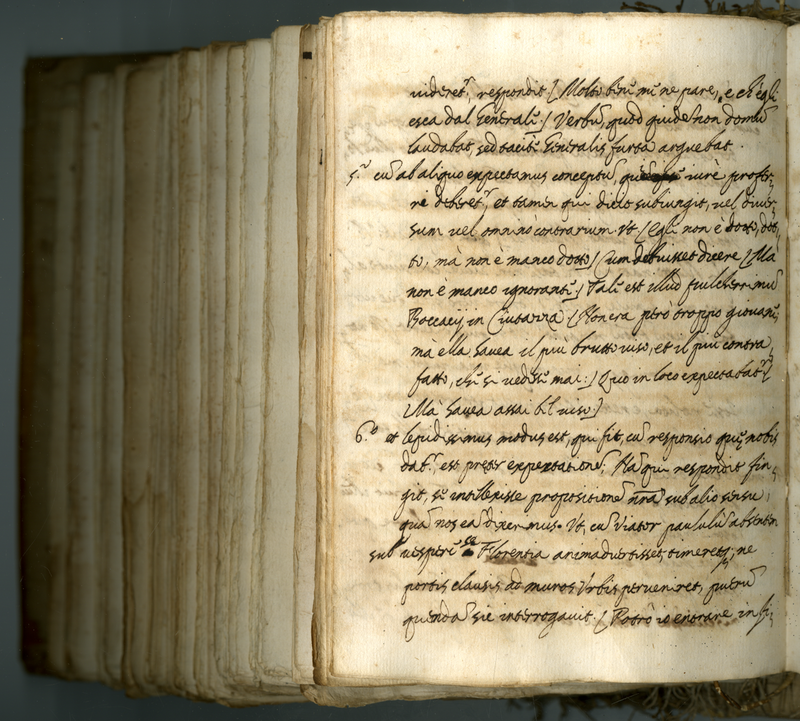 uideret.r, respondit. [Molto ben mi ne pare, e ch'egli
esca dal Generale.] Verbu, quod quide non domu
laudabat, sed tacite Generalis furta arguebat.
5.º cu ab aliquo expectamus conceptu, iure profer,
ri deberet.r, et tamen qui dicto subiungit, uel diuer,
sum uel omninò contrarium. Vt [Egli non è dotto, dot,
to, mà non è manco dotto] Cum debuisset dicere [Ma
non è manco ignorante.] Tale est illud fulcherrimu
Boccacij in Ciutazza [Non era però troppo giouane,
mà ella hauea il più brutto uiso, et il più contra,
fatto, che si uedesse mai:] Quo in loco expectabat.r [
Mà hauea assai bel uiso]
6.º et lepidissimus modus est, qui fit, cu responsio quae nobis
dat.r est preter expectatione; Na qui respondit fin,
git, se intellexisse propositione nrâ sub alio sensu,
qua nos ea diximus. Vt, cu Viator paululu absentem
sub uesperu se Florentia animaduertisset, timeretq; ne
portis clausis ad muros Vrbis perueniret, pueru
quenda sic interrogauit. [Potrò io entrare in si,